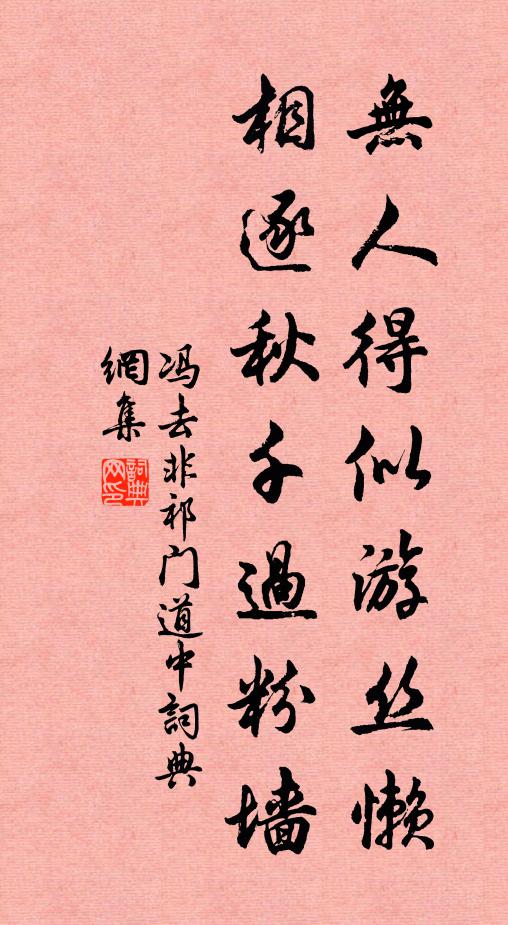 無人得似游丝懒
相逐秋千過粉墙
冯去非祁门道中詞典
網集
詞典
网印